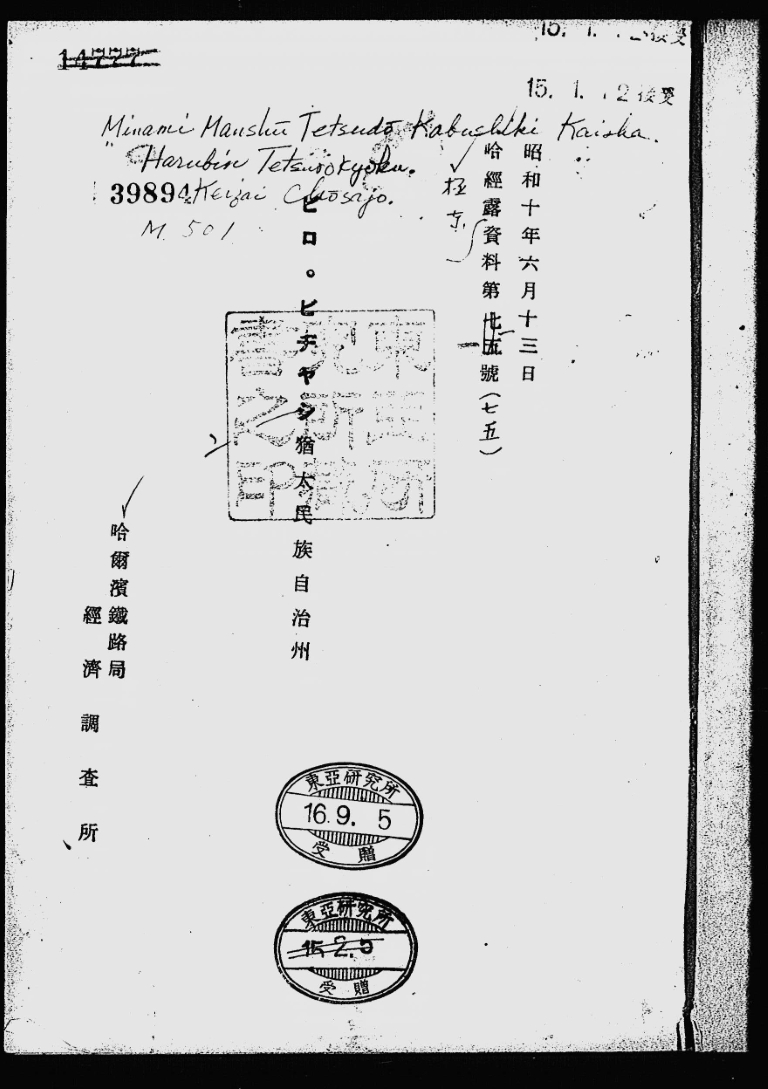 14777
15. 1. 12 接受
Minami Manshū Tetsudō Kabushiki Kaisha.
Harubin Tetsurokyoku.
39894 Keizai Chōsajo.
M 501
昭和十年六月十三日
哈經露資料第七五號(七五)
極东
ビロ。ビヂヤン猶太民族自治州
哈爾濱鐵路局
經濟調査所
東亞研究所藏書之印
東亞研究所
16.9.5
受贈
東亞研究所
15.2.5
受贈